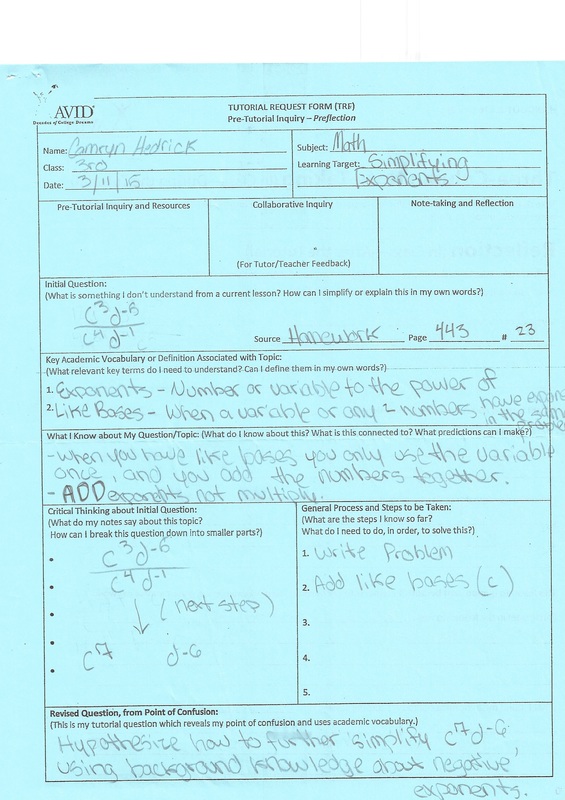 AVID
Decades of College Dreams
TUTORIAL REQUEST FORM (TRF)
Pre-Tutorial Inquiry – Preflection
Name: Camryn Hedrick
Class: 3rd
Date: 3/11/15
Subject: Math
Learning Target: Simplifying
Exponents.
Pre-Tutorial Inquiry and Resources
Collaborative Inquiry
(For Tutor/Teacher Feedback)
Note-taking and Reflection
Initial Question:
(What is something I don't understand from a current lesson? How can I simplify or explain this in my own words?)
c³d⁻⁶
c⁴d⁻¹
Source Homework Page 443 # 23
Key Academic Vocabulary or Definition Associated with Topic:
(What relevant key terms do I need to understand? Can I define them in my own words?)
1. Exponents - Number or variable to the power of
2. Like Bases - When a variable or any 2 numbers have
in the
What I Know about My Question/Topic: (What do I know about this? What is this connected to? What predictions can I make?)
- when you have like bases you only use the variable
once, and you add the numbers together
- ADD exponents not multiply.
Critical Thinking about Initial Question:
(What do my notes say about this topic?
How can I break this question down into smaller parts?)
c³d⁻⁶
c⁴d⁻¹
(next step)
c⁷ d-6
General Process and Steps to be Taken:
(What are the steps I know so far?
What do I need to do, in order, to solve this?)
1. Write Problem
2. Add like bases (c)
3.
4.
5.
Revised Question, from Point of Confusion:
(This is my tutorial question which reveals my point of confusion and uses academic vocabulary.)
Hypothesize how to further simplify c⁷d⁻⁶
using background knowledge about negative
exponents.